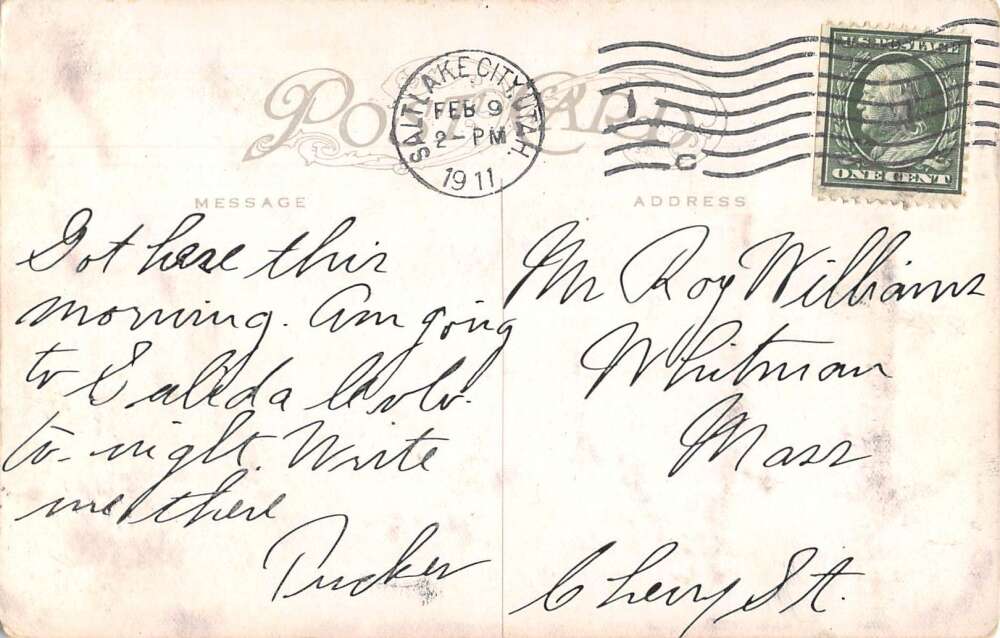 POST CARD
SALT LAKE CITY, UTAH.
FEB 9
2 - PM
1911
1
C
U.S. POSTAGE
ONE CENT
MESSAGE
Got here this
morning. Am going
to Salida Colo.
to-night. Write
me there
Tucker
ADDRESS
Mr Roy Williams
Whitman
Mass
Cherry St.